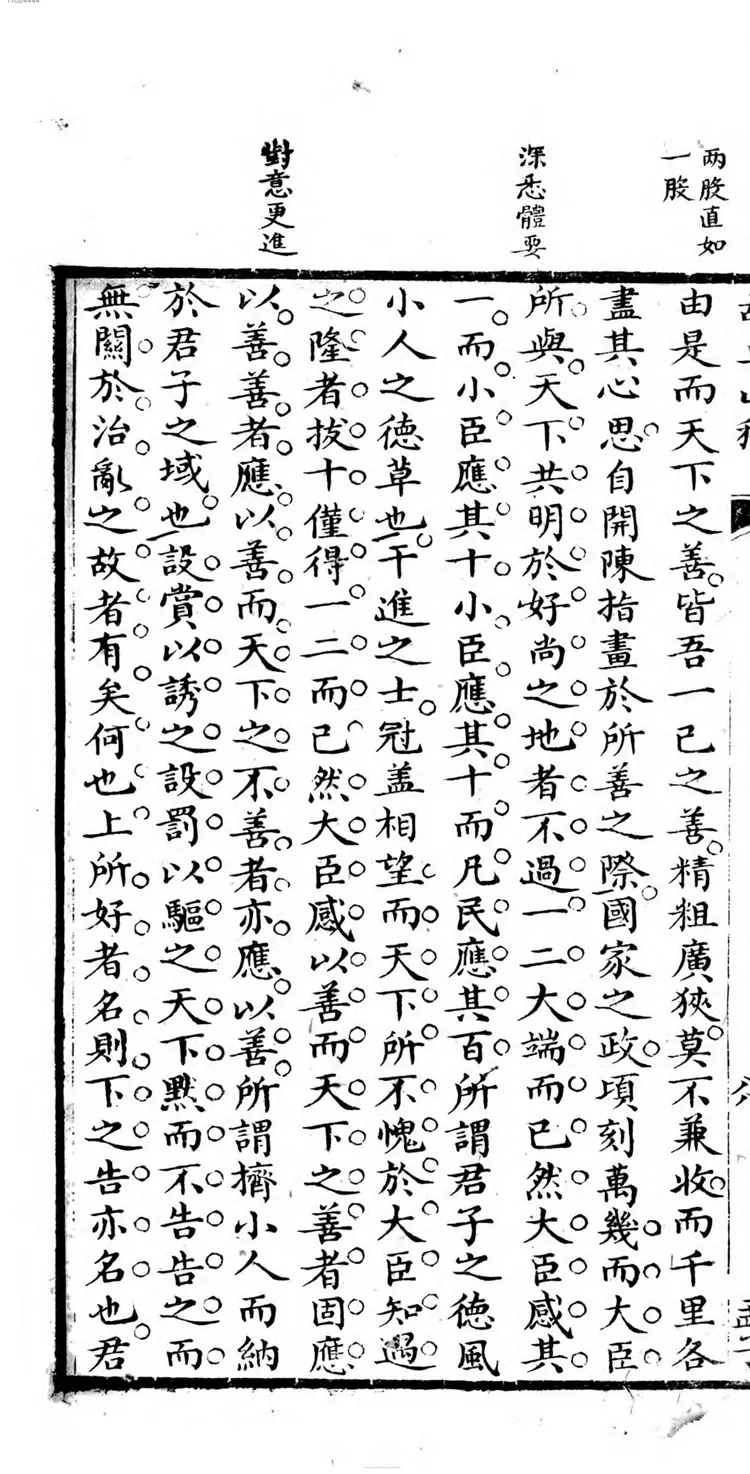 两股直如
一股
深悉體要
對意更進
由是而天下之善皆吾一己之善精粗廣狹莫不兼收而千里各
盡其心思自開陳指畫於所善之際國家之政頃刻萬幾而大臣
所與天下共明於好尚之地者不過一二大端而已然大臣感其
一而小臣應其十小臣應其十而凡民應其百所謂君子之德風
小人之德草也干進之士冠盖相望而天下所不愧於大臣知遇
之隆者拔十僅得一二而已然大臣感以善而天下之善者固應
以善善者應以善而天下之不善者亦應以善所謂擠小人而納
於君子之域也設賞以誘之設罰以驅之天下黙而不告告之而
無關於治亂之故者有矣何也上所好者名則下之告亦名也君